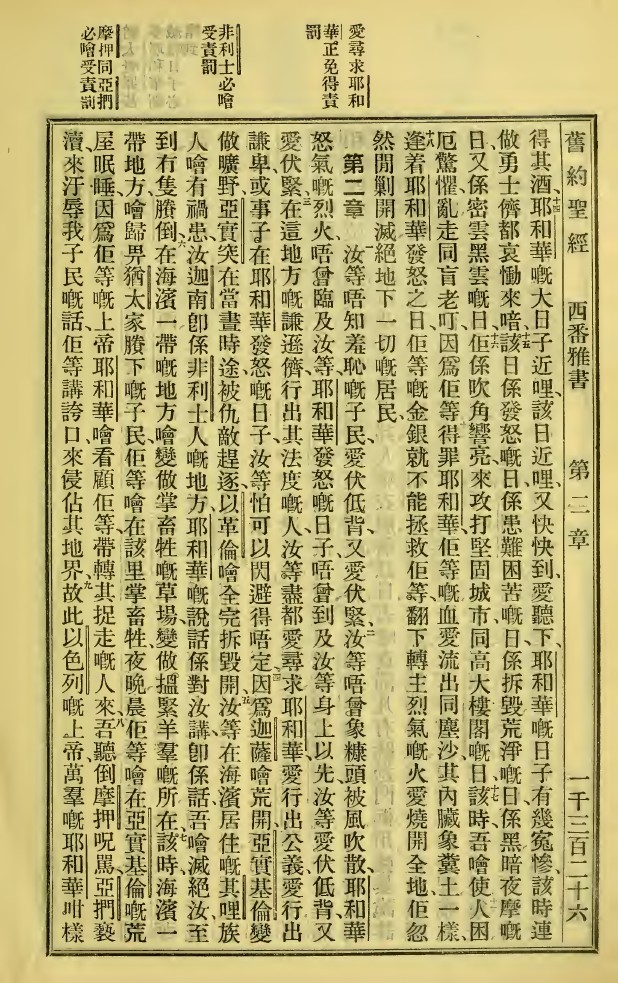 愛尋求耶和
華正免得責
罰
非利士必噲
受責罰
摩押同亞捫
必噲受責罰
舊約聖經 西番雅書 第二章 一千三百二十六
得其酒、十四耶和華嘅大日子近哩、該日近哩、又快快到、愛聽下、耶和華嘅日子有幾寃慘、該時連
做勇士儕都哀慟來喑、十五該日係發怒嘅日、係患難困苦嘅日、係拆毀荒淨嘅日、係黑暗夜摩嘅
日、又係密雲黑雲嘅日、十六日係吹角響亮、來攻打堅固城市、同高大樓閣嘅日、十七該時、吾噲使人困
厄驚懼亂走、同盲老叮、因爲佢等得罪耶和華、佢等嘅血愛流出同塵沙、其內臟象糞土一樣、
十八逢着耶和華發怒之日、佢等嘅金銀就不能拯救佢等、翻下轉主烈氣嘅火、愛燒開全地、佢忽
然間剿開滅絕地下一切嘅居民、
第二章 一汝等唔知羞恥嘅子民、愛伏低背、又愛伏緊、二汝等唔曾象糠頭被風吹散、耶和華
怒氣嘅烈火唔曾臨及汝等、耶和華發怒嘅日子唔曾到及汝等身上以先、汝等愛伏低背、又
愛伏緊、三在這地方嘅謙遜儕、行出其法度嘅人、汝等盡都愛尋求耶和華、愛行出公義、愛行出
謙卑、或事子在耶和華發怒嘅日子、汝等怕可以閃避得唔定、四因爲迦薩噲荒開、亞實基倫變
做曠野、亞實突在當晝時、途被仇敵趕逐、以革倫噲全完拆毀開、五汝等在海濱居住嘅其哩族
人、噲有禍患、汝迦南卽係非利士人嘅地方、耶和華嘅說話係對汝講、卽係話、吾噲滅絕汝、至
到冇隻賸倒、六在海濱一帶嘅地方、噲變做掌畜牲嘅草場、變做搵緊羊羣嘅所在、七該時、海濱一
帶地方、噲歸畀猶太家賸下嘅子民、佢等噲在該里掌畜牲、夜晚晨佢等噲在亞實基倫嘅荒
屋眠睡、因爲佢等嘅上帝耶和華、噲看顧佢等、帶轉其捉走嘅人來、八吾聽倒摩押呪罵、亞捫褻
瀆、來汙辱我子民嘅話、佢等講誇口、來侵佔其地界、九故此以色列嘅上帝、萬羣嘅耶和華咁樣